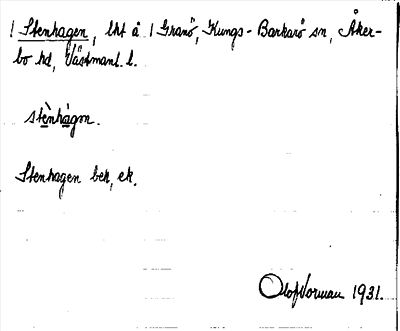 1 Stenhagen, lht å 1 Granö, Kungs-Barkarö sn, Åker-
bo hd, Västmanl. l.
stènhàgon.
Stenhagen bek, ek.
Olof Norman 1931.